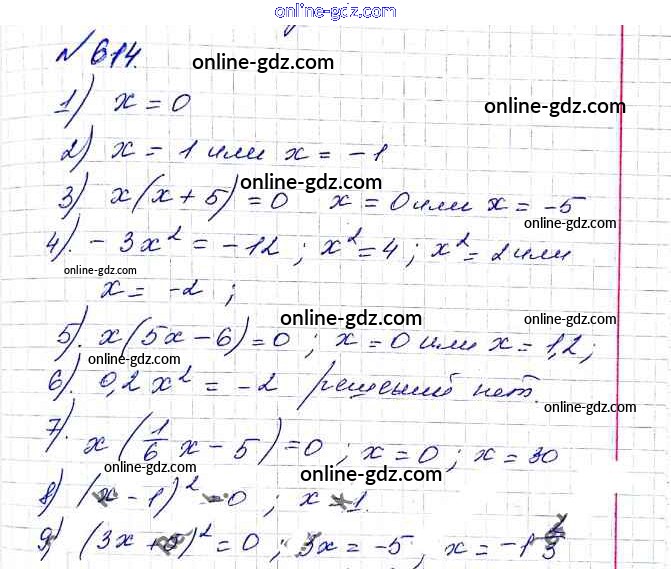 online-gdz.com
№ 614.
online-gdz.com
1) x = 0
online-gdz.com
2) x = 1 или x = -1
3) x(x + 5) = 0 x = 0 или x = -5
online-gdz.com
online-gdz.com
4). -3x² = -12 ; x² = 4 ; x² = 2 или
online-gdz.com
x = -2 ;
online-gdz.com
5). x(5x - 6) = 0 ; x = 0 или x = 1,2 ;
online-gdz.com
online-gdz.com
6). 0,2x² = -2 решений нет.
online-gdz.com
7). x(1/6 x - 5) = 0 ; x = 0 ; x = 30
online-gdz.com
online-gdz.com
8) (x - 1)² = 0 ; x = 1.
9) (3x + 5)² = 0 ; 3x = -5, x = -1 2/3